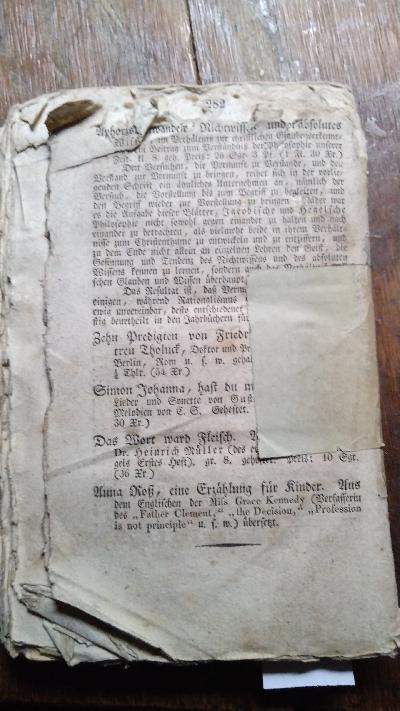 282
Aphorismen über Nichtwissen und absolutes
Wissen im Verhältniss zur christlichen Glaubenserkennt-
Beitrag zum Verständniß der Philosophie unserer
Zeit. 11 B. geh. Preis: 20 Sgr.
Den Versuchen, die Vernunft zu Verstande, und den
Verstand zur Vernunft zu bringen, reihet sich in der vorlie-
genden Schrift ein ähnliches Unternehmen an, nämlich der
Versuch, die Vorstellung bis zum Begriff zu begleiten, und
den Begriff wieder zur Vorstellung zu bringen. Näher war
es die Aufgabe dieser Blätter, Jacobische und Hegelsche
Philosophie nicht sowohl gegen einander zu halten und nach
einander zu betrachten, als vielmehr beide in ihrem Verhält-
nisse zum Christenthume zu entwickeln und zu entziffern, und
zu dem Ende nicht allein an einzelnen Lehren den Geist, die
Gesinnung und Tendenz des Nichtwissens und des absoluten
Wissens kennen zu lernen, sondern auch das
schen Glauben und Wissen überhaupt
Das Resultat ist, daß
einigen, während Rationalismus
ewig unvereinbar, desto entschiedener
stig beurtheilt in den Jahrbüchern für
Zehn Predigten von Friedr
treu Tholuck, Doktor und Pr
Berlin, Rom u. s. w. geha
Thlr. (54 Xr.)
Simon Johanna, hast du m
Lieder und Sonette von Gust
Melodien von C. S. Geheftet.
30 Xr.)
Das Wort ward Fleisch.
Dr. Heinrich Müller (des
gels Erstes Heft). gr. 8. geheftet. Preis: 10 Sgr.
(36 Xr.)
Anna Roß, eine Erzählung für Kinder. Aus
dem Englischen der Miß Grace Kennedy (Verfasserin
des „Father Clement,“ „the Decision,“ „Profession
is not principle“ u. s. w.) übersetzt.